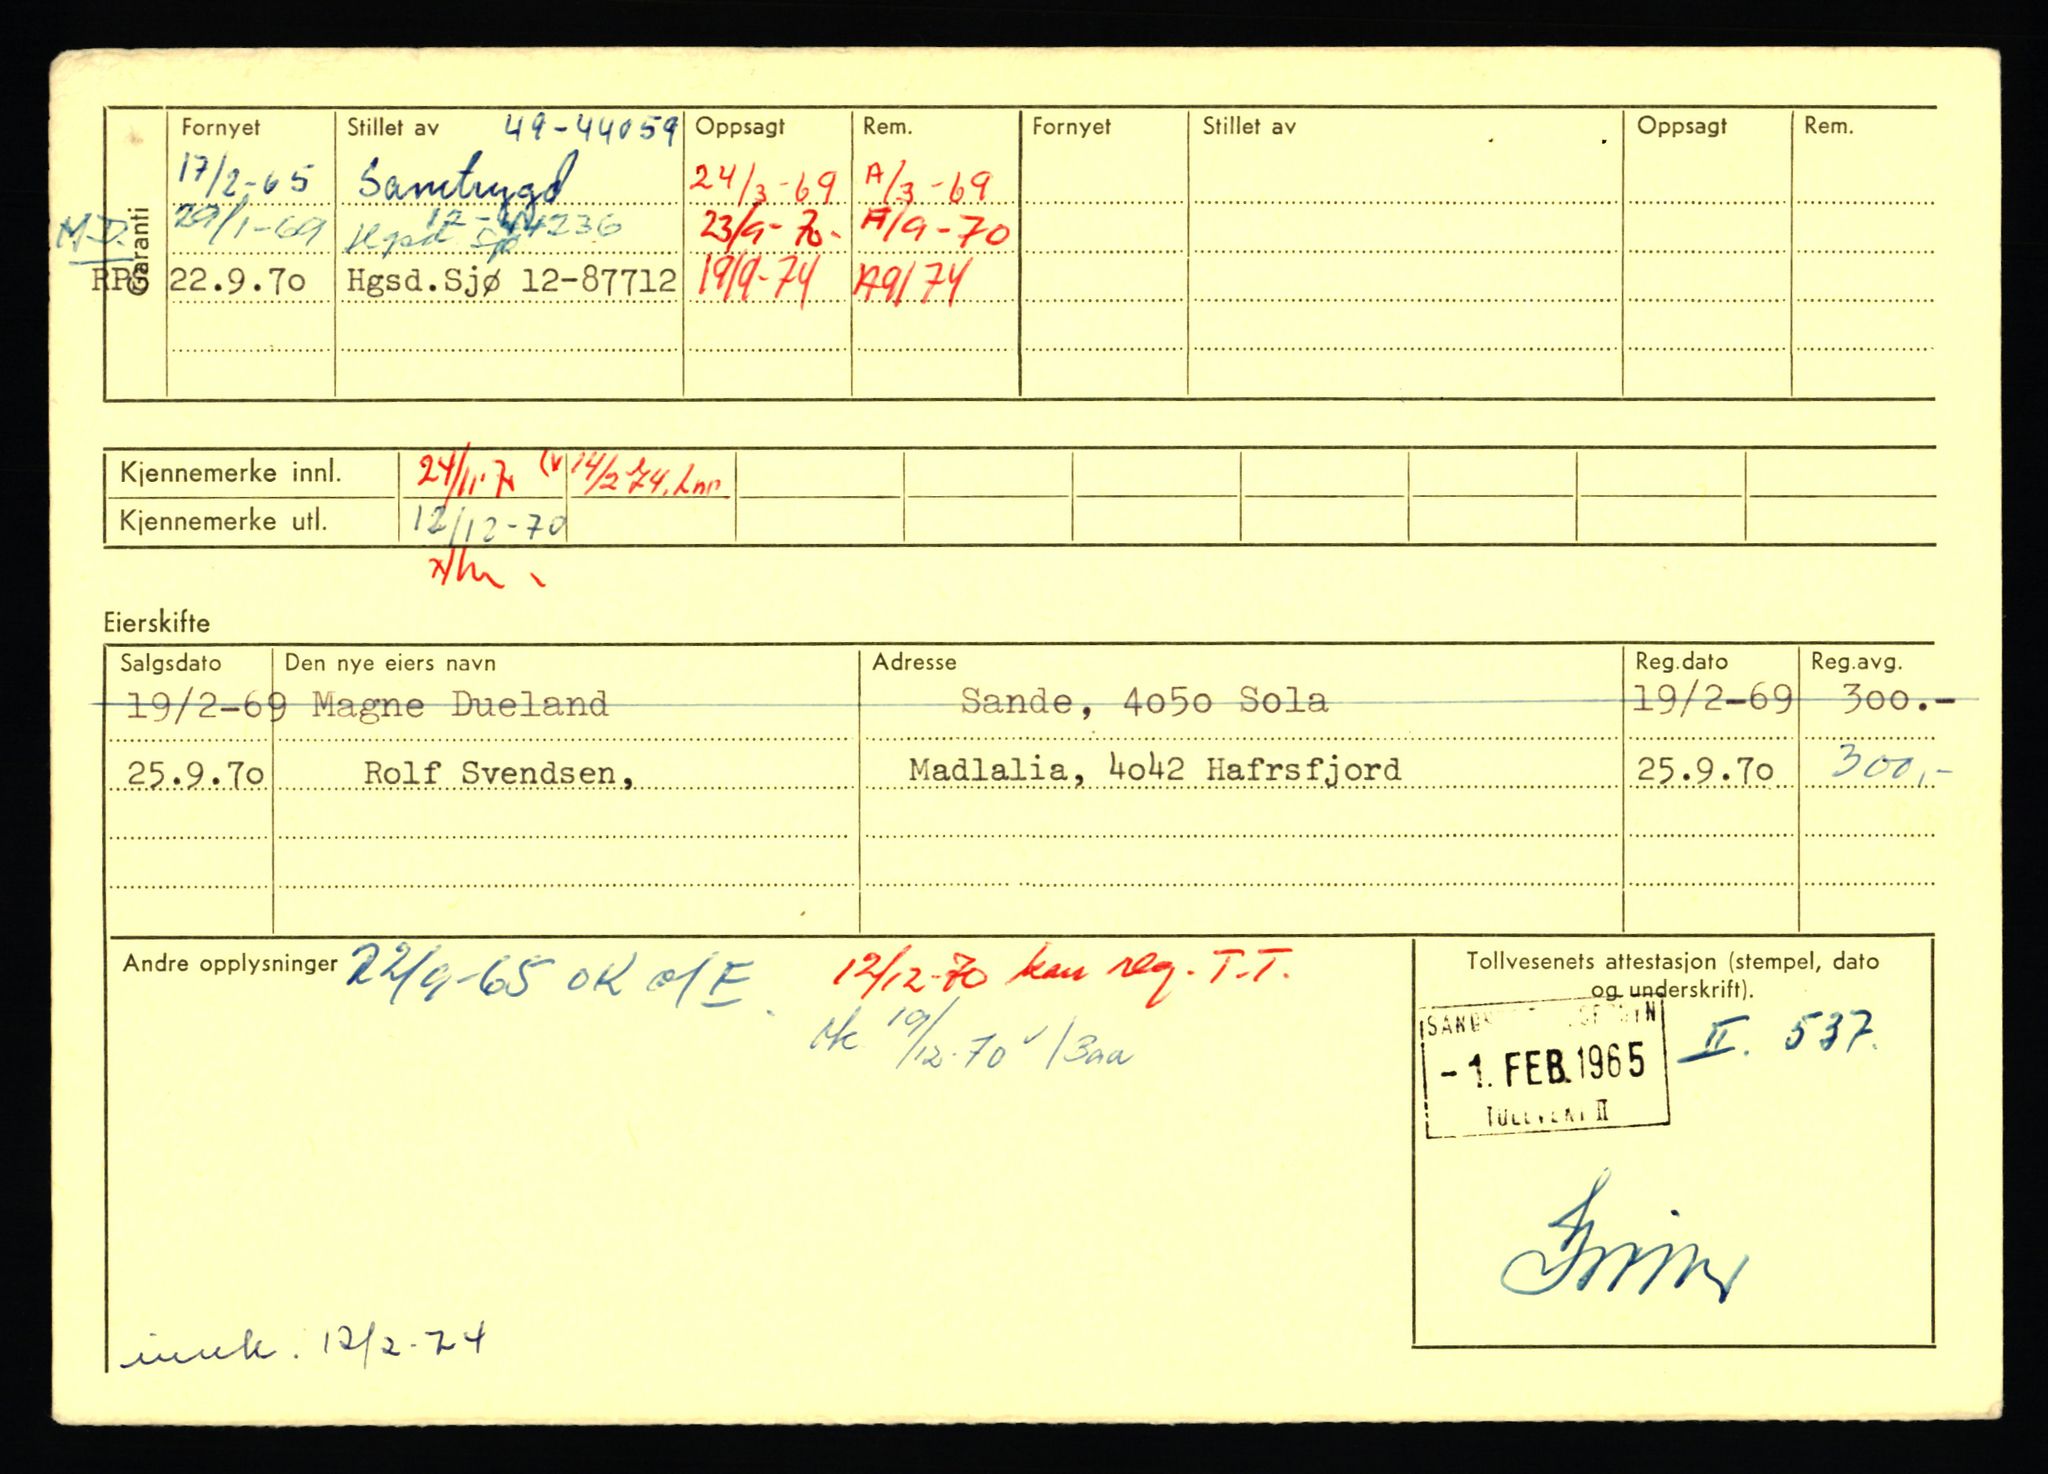 Garanti
Fornyet Stillet av 49-44059 Oppsagt Rem. Fornyet Stillet av Oppsagt Rem.
17/2-65 Samtrygd 24/3-69 A/3-69
M.D. 29/1-69 Hgsd Sjø 12-44236 23/9-70. A/9-70
RPS 22.9.7o Hgsd.Sjø 12-87712 19/9-74 A9/74
Kjennemerke innl. 24/11.7 14/2-74.
Kjennemerke utl. 12/12-70
Eierskifte
Salgsdato Den nye eiers navn Adresse Reg.dato Reg.avg.
19/2-69 Magne Dueland Sande, 4o5o Sola 19/2-69 3oo.-
25.9.7o Rolf Svendsen, Madlalia, 4o42 Hafrsfjord 25.9.7o 300,-
Andre opplysninger 22/9-65 OK o/E 12/12-70 kan reg. T.T.
19/12-70
Tollvesenets attestasjon (stempel, dato
og underskrift).
-1. FEB. 1965 II. 537.
II
12/2-74